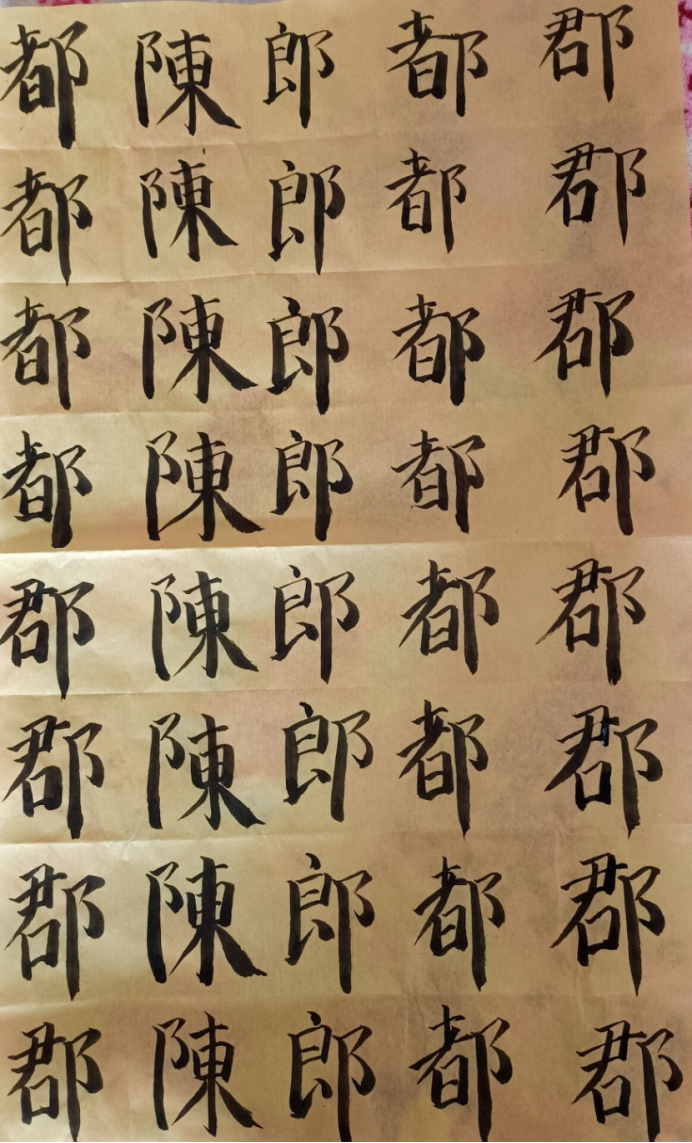 郡郡郡郡郡郡郡郡
都都都都都都都都
郎郎郎郎郎郎郎郎
陳陳陳陳陳陳陳陳
都都都都郡郡郡郡